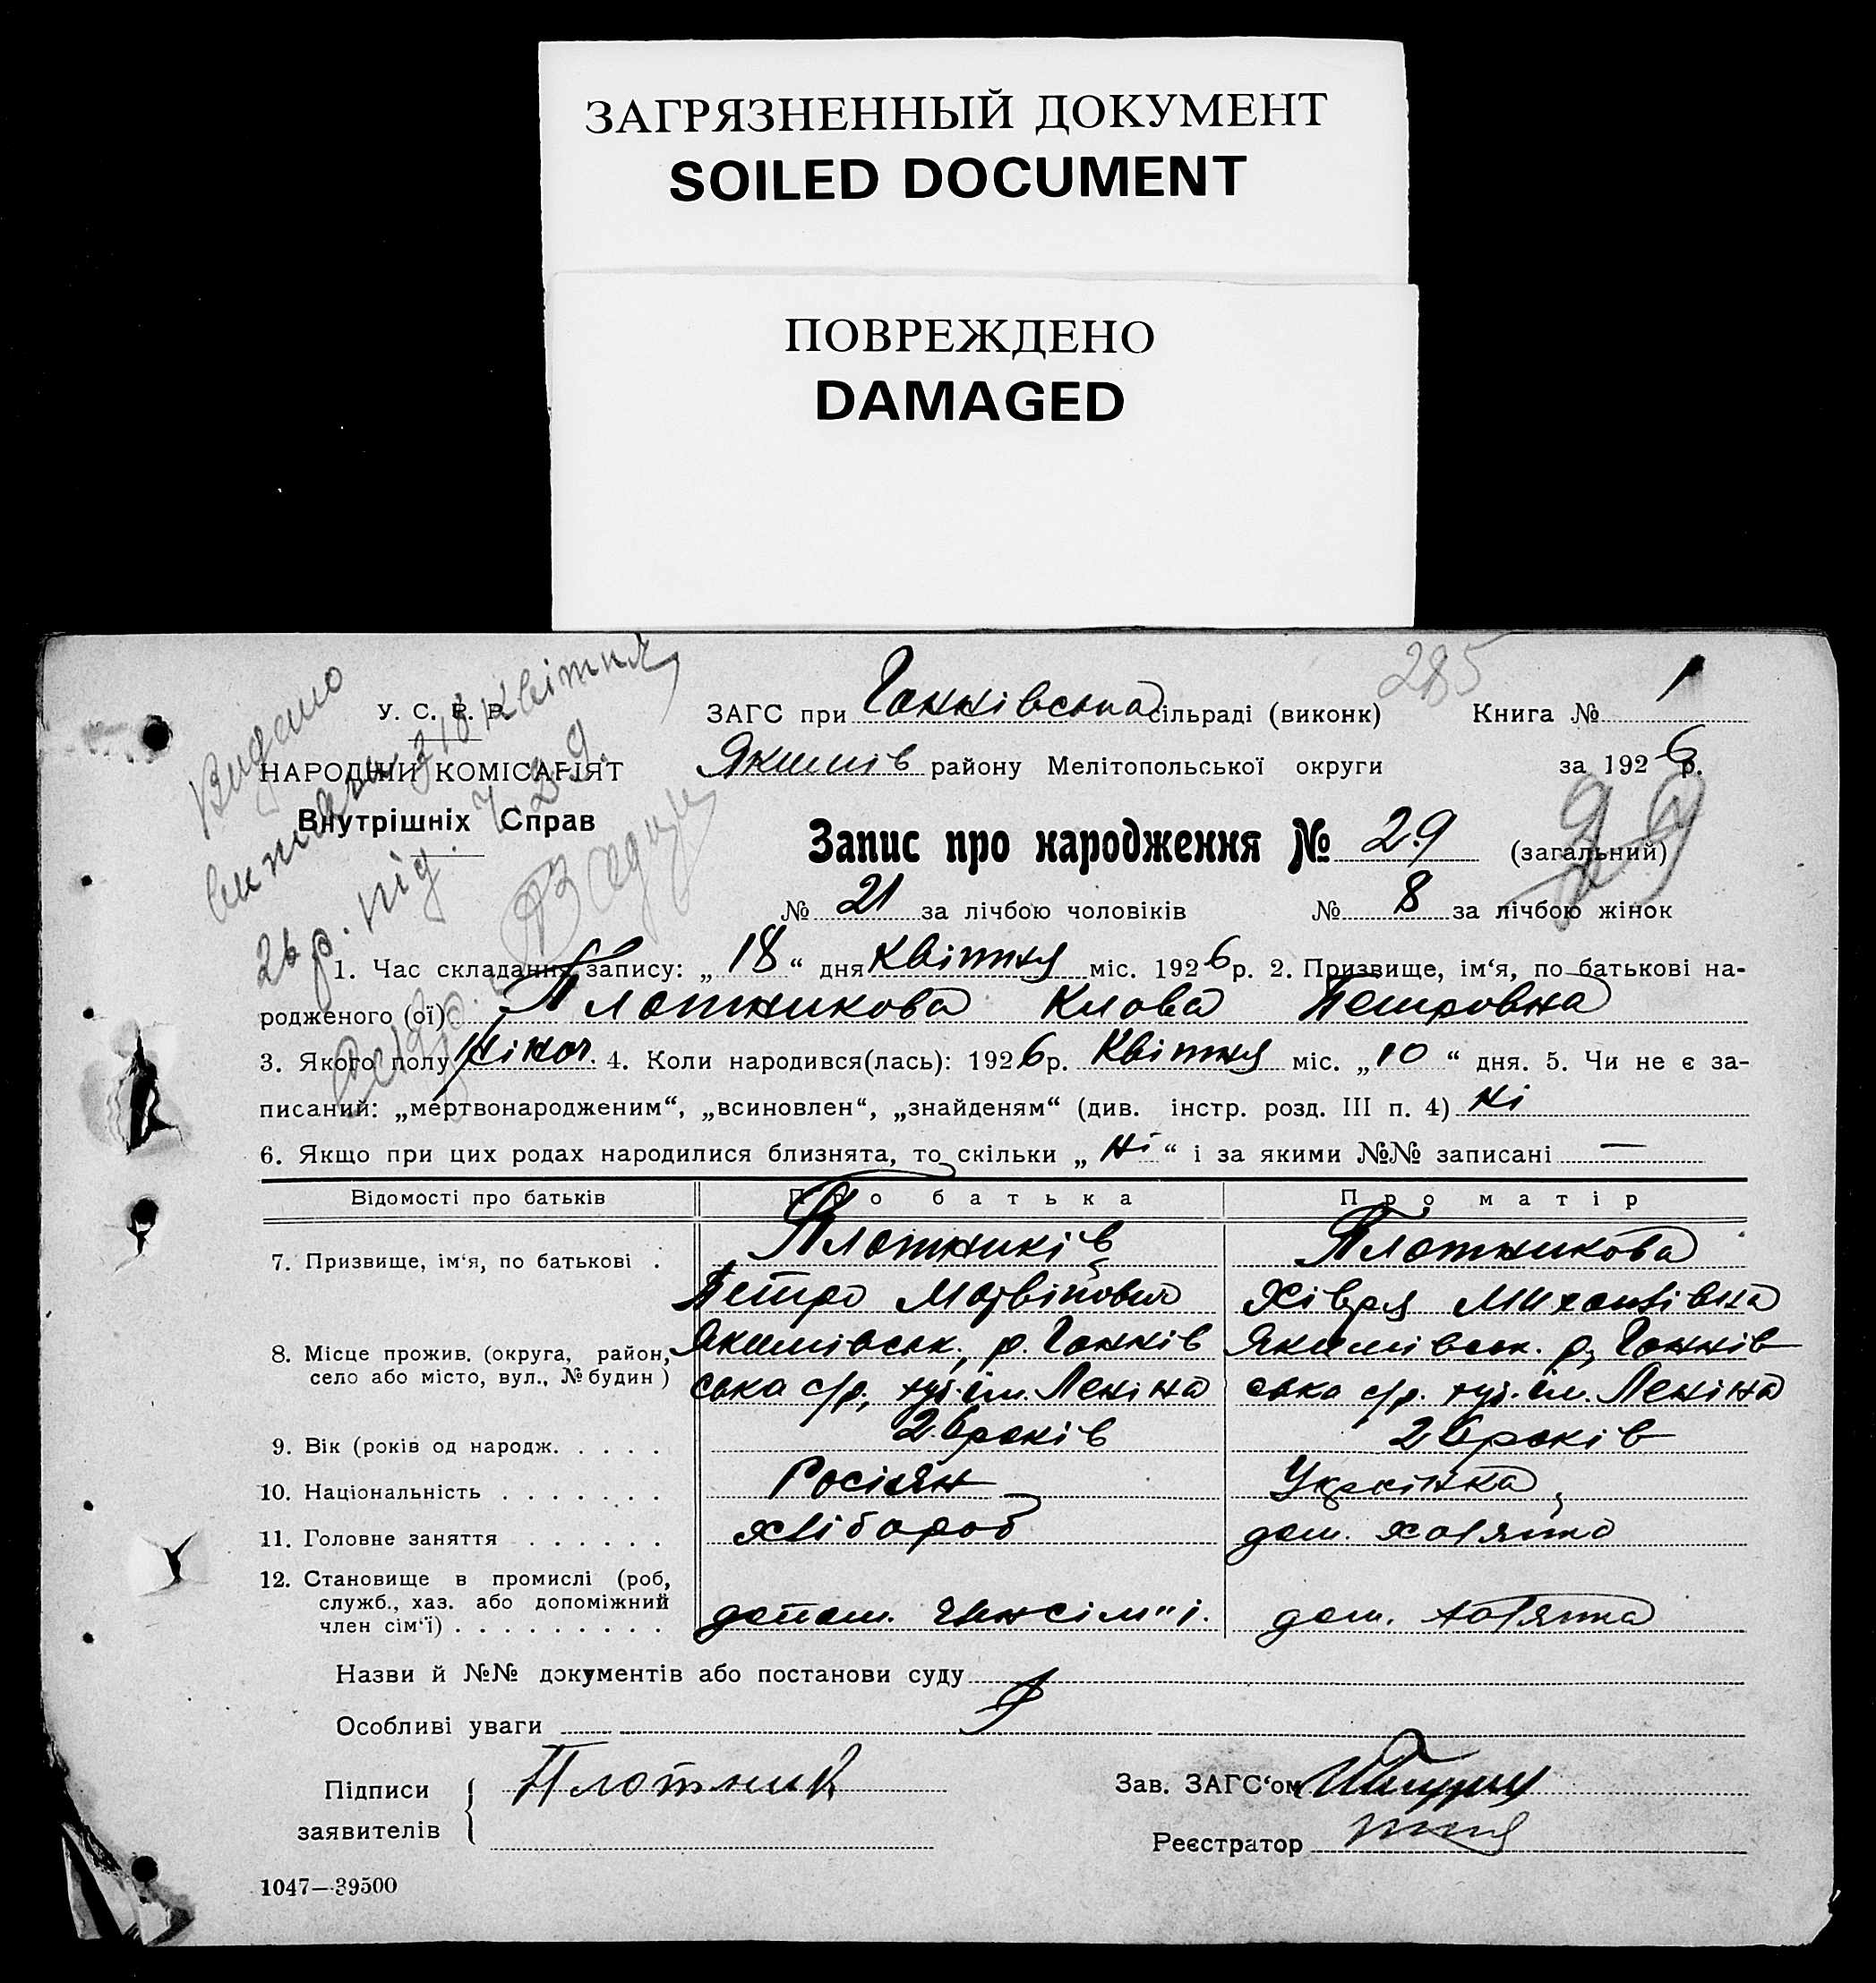 ЗАГРЯЗНЕННЫЙ ДОКУМЕНТ
SOILED DOCUMENT
ПОВРЕЖДЕНО
DAMAGED
285
Видано
виписку з 18 квітня
26 р. під
У. С. Р. Р.
НАРОДНИЙ КОМІСАРІЯТ
Внутрішніх Справ
ЗАГС при Ганнівська сільраді (виконк) Книга № 1
Якимів району Мелітопольської округи за 1926 р.
Запис про народження № 29 (загальний) 29
№ 21 за лічбою чоловіків № 8 за лічбою жінок
1. Час складання запису: „18“ дня квітня міс. 1926 р. 2. Призвище, ім‘я, по батькові на-
родженого (ої) Плотникова Клова Петровна
3. Якого полу жіноч. 4. Коли народився(лась): 1926 р. Квітня міс. „10“ дня. 5. Чи не є за-
писаний: „мертвонародженим“, „всиновлен“, „знайденям“ (див. інстр. розд. III п. 4) ні
6. Якщо при цих родах народилися близнята, то скільки „ні“ і за якими №№ записані —
Відомості про батьків Про батька Про матір
7. Призвище, ім‘я, по батькові . Плотників Плотникова
Петро Матвійович Хівря Михайлівна
8. Місце прожив. (округа, район, Якимівськ. р. Ганнів Якимівськ. р. Ганнів
село або місто, вул., № будин) ська с/р, хут. ім. Леніна ська с/р. хут. ім. Леніна
9. Вік (років од народж. . . . . 26 років 26 років
10. Національність . . . . . . . Росіян Укрїнка
11. Головне заняття . . . . . . хлібороб дом. хазяйка
12. Становище в промислі (роб,
служб., хаз. або допоміжний
член сім‘ї) . . . . . . . . . допом. член сім"ї. дом. хазяйка
Назви й №№ документів або постанови суду
Особливі уваги
Підписи Плотник Зав. ЗАГС‘ом
заявителів Реєстратор
1047—39500